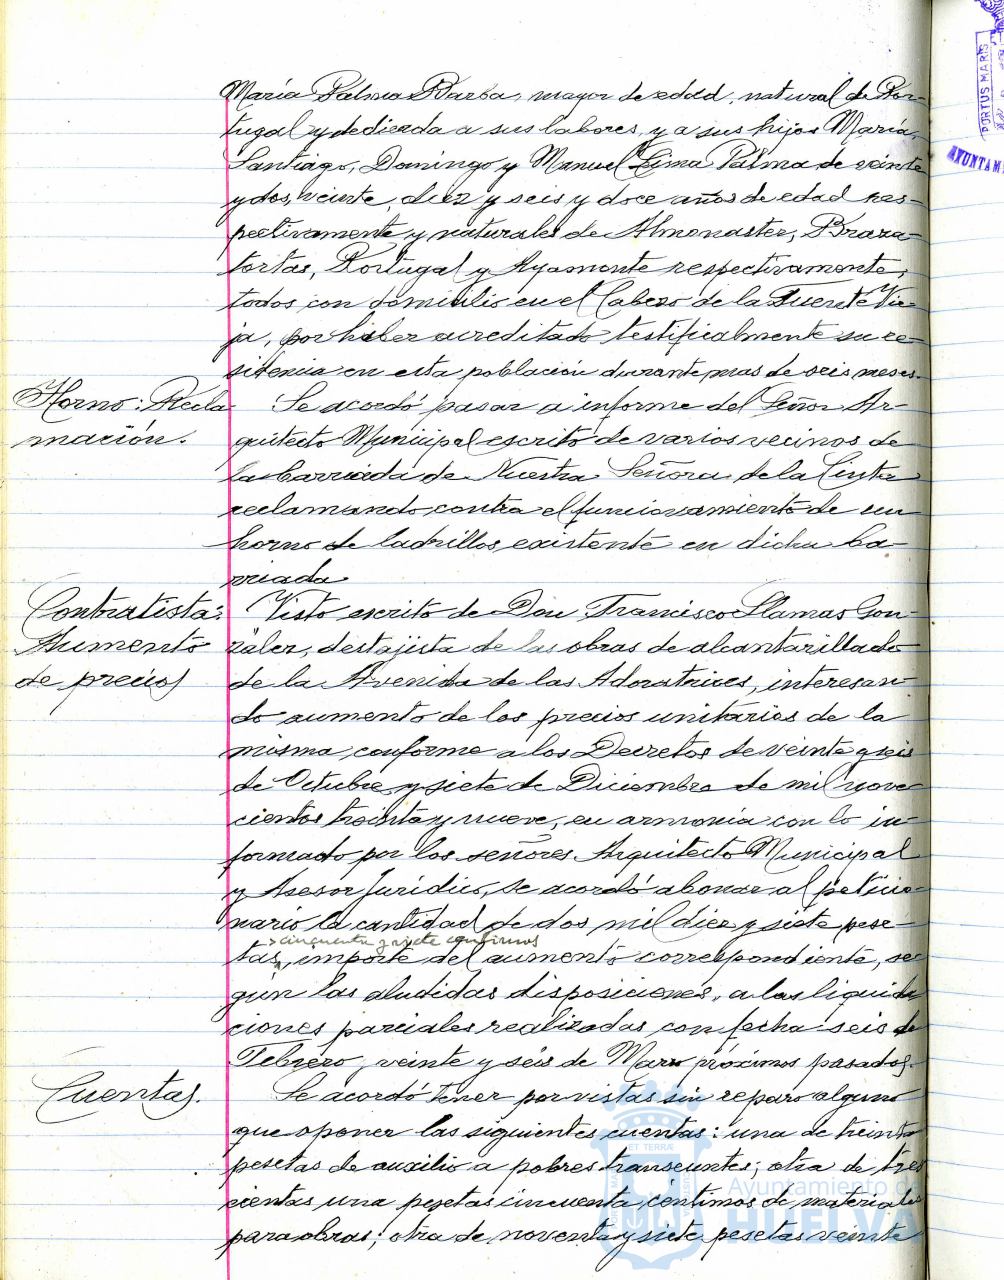 Maria Palma Barba, mayor de edad, natural de Por-
tugal y dedicada a sus labores, y a sus hijos María,
Santiago, Domingo y Manuel Lima Palma de veinte
y dos, veinte, diez y seis y doce años de edad res-
pectivamente y naturales de Almonaster, Braza-
tortas, Portugal y Ayamonte respectivamente,
todos con domicilio en el Cabezo de la Fuente Vie-
ja, por haber acreditado testificalmente su re-
sidencia en esta población durante mas de seis meses.
Horno: Recla-
mación.
Se acordó pasar a informe del Señor Ar-
quitecto Municipal escrito de varios vecinos de
la barriada de Nuestra Señora de la Cinta
reclamando contra el funcionamiento de un
horno de ladrillos existente en dicha ba-
rriada
Contratista:
Aumento
de precios
Visto escrito de Don Francisco Llamas Gon-
zález, destajista de las obras de alcantarillado
de la Avenida de las Adoratrices, interesan-
do aumento de los precios unitarios de la
misma conforme a los Decretos de veinte y seis
de Octubre y siete de Diciembre de mil nove-
cientos treinta y nueve, en armonía con lo in-
formado por los señores Arquitecto Municipal
y Asesor Jurídico, se acordó abonar al peticio-
nario la cantidad de dos mil diez y siete pese-
cincuenta y siete centimos
tas, importe del aumento correspondiente, se-
gún las aludidas disposiciones, a las liquida-
ciones parciales realizadas con fecha seis de
Febrero, veinte y seis de Marzo próximos pasados.
Cuentas.
Se acordó tener por vistas sin reparo alguno
que oponer las siguientes cuentas: una de treinta
pesetas de auxilio a pobres transeuntes; otra de tres
cientas una pesetas cincuenta centimos de materiales
para obras; otra de noventa y siete pesetas veinte
PORTUS MARIS
AYUNTAM
Ayuntamiento de
HUELVA